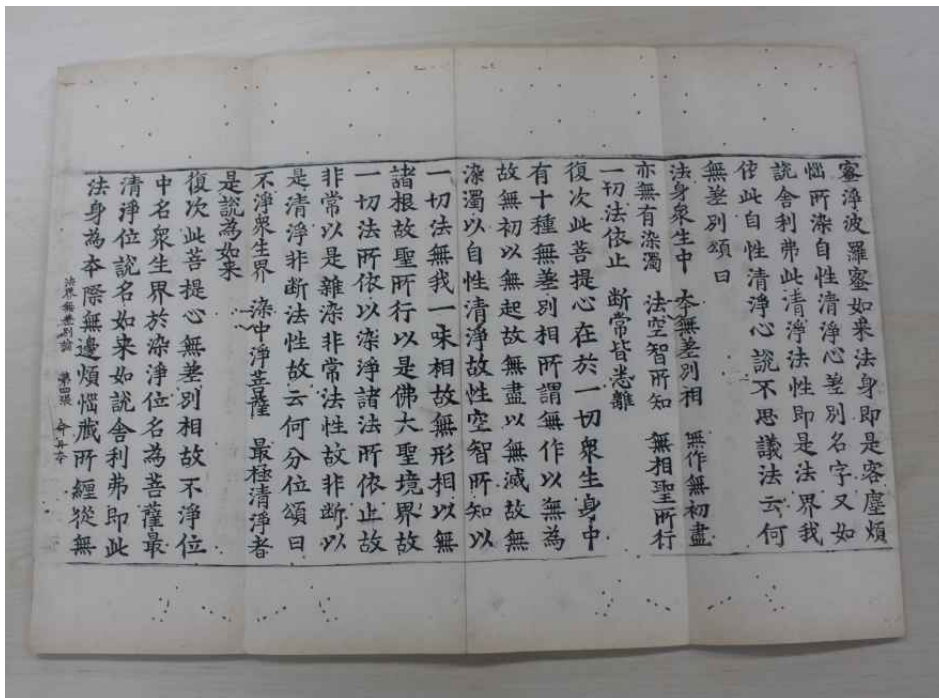 蜜淨波羅蜜如来法身即是客塵煩
惱所染自性清淨心差別名字又如
說舍利弗此清淨法性即是法界我
依此自性清淨心說不思議法云何
無差別頌曰
法身衆生中 夲無差別相 無作無初盡
亦無有染濁 法空智所知 無相聖所行
一切法依止 断常皆悉離
復次此菩提心在於一切衆生身中
有十種無差別相所謂無作以無為
故無初以無起故無盡以無滅故無
染濁以自性清淨故性空智所知以
一切法無我一味相故無形相以無
諸根故聖所行以是佛大聖境界故
一切法所依以染淨諸法所依止故
非常以是雜染非常法性故非断以
是清淨非断法性故云何分位頌曰
不淨衆生界 染中淨菩薩 最極清淨者
是說為如来
復次此菩提心無差別相故不淨位
中名衆生界於染淨位名為菩薩最
清淨位說名如来如說舍利弗即此
法身為夲際無邊煩惱藏所纏從無
法界無差別論 第四張